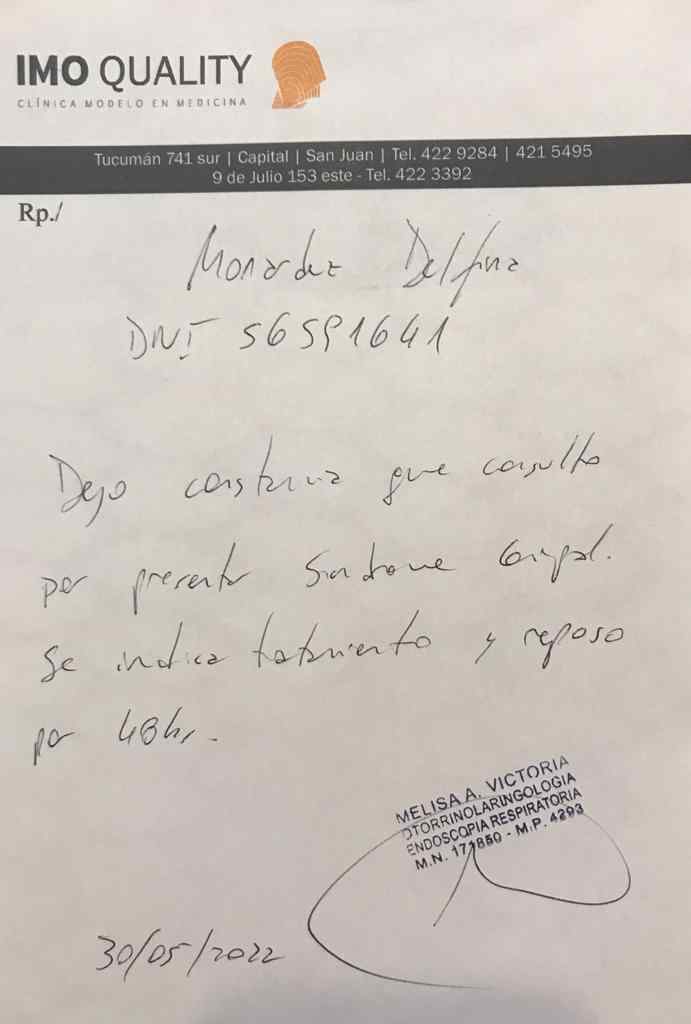 IMO QUALITY
CLÍNICA MODELO EN MEDICINA
Tucumán 741 sur | Capital | San Juan | Tel. 422 9284 | 421 5495
9 de Julio 153 este - Tel. 422 3392
Rp./
Monardez Delfina
DNI 56591641
Dejo constancia que consulto
por presentar Sindrome Gripal.
Se indica tratamiento y reposo
por 48hs.
MELISA A. VICTORIA
OTORRINOLARINGOLOGIA
ENDOSCOPIA RESPIRATORIA
M.N. 171850 - M.P. 4293
30/05/2022